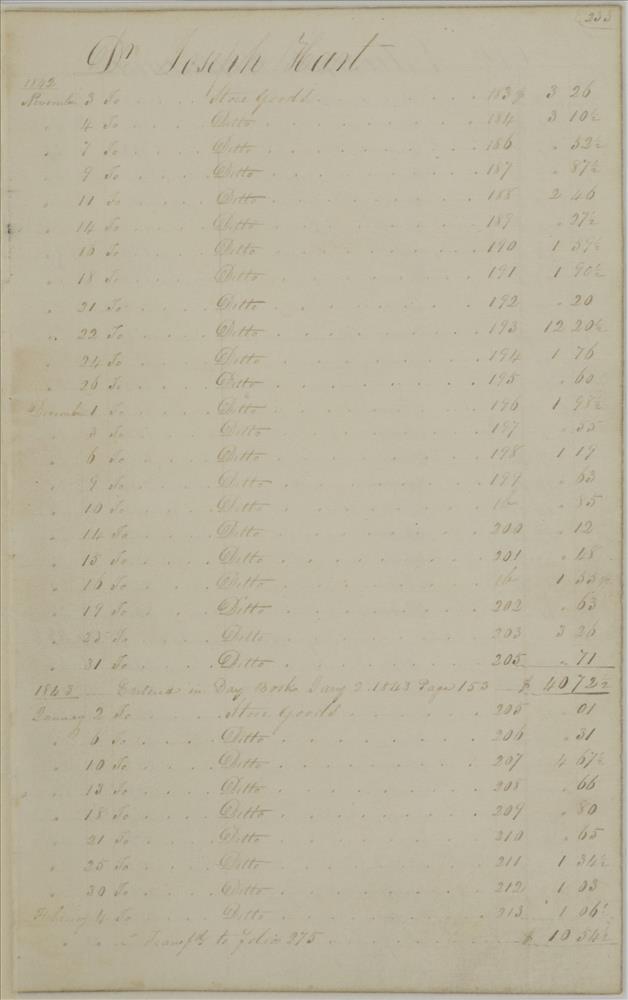 233
Dr Joseph Hart
1842
November 3 To . . . . Store Goods . . . . . . . 183 $ 3 26
" 4 To . . . . Ditto . . . . . . . . 184 3 10½
" 7 To . . . . Ditto . . . . . . . . 186 . 52½
" 9 To . . . . Ditto . . . . . . . . 187 . 87½
" 11 To . . . . Ditto . . . . . . . . 188 2 46
" 14 To . . . . Ditto . . . . . . . . 189 . 27½
" 16 To . . . . Ditto . . . . . . . . 190 1 59½
" 18 To . . . . Ditto . . . . . . . . 191 1 90½
" 21 To . . . . Ditto . . . . . . . . 192 . 20
" 22 To . . . . Ditto . . . . . . . . 193 12 20½
" 24 To . . . . Ditto . . . . . . . . 194 1 76
" 26 To . . . . Ditto . . . . . . . . 195 . 60
December 1 To . . . . Ditto . . . . . . . . 196 1 98½
" 3 To . . . . Ditto . . . . . . . . 197 . 35
" 6 To . . . . Ditto . . . . . . . . 198 1 19
" 9 To . . . . Ditto . . . . . . . . 199 . 63
" 10 To . . . . Ditto . . . . . . . . ib . 85
" 14 To . . . . Ditto . . . . . . . . 200 . 12
" 15 To . . . . Ditto . . . . . . . . 201 . 48
" 16 To . . . . Ditto . . . . . . . . ib 1 55½
" 19 To . . . . Ditto . . . . . . . . 202 . 63
" 23 To . . . . Ditto . . . . . . . . 203 3 26
" 31 To . . . . Ditto . . . . . . . . 205 . 71
1843 Entered in Day Book Jany 2. 1843 Page 153 $ 40 72½
January 2 To . . . . Store Goods . . . . . . . 205 . 01
" 6 To . . . . Ditto . . . . . . . . 206 . 31
" 10 To . . . . Ditto . . . . . . . . 207 4 67½
" 13 To . . . . Ditto . . . . . . . . 208 . 66
" 18 To . . . . Ditto . . . . . . . . 209 . 80
" 21 To . . . . Ditto . . . . . . . . 210 . 65
" 25 To . . . . Ditto . . . . . . . . 211 1 34½
" 30 To . . . . Ditto . . . . . . . . 212 1 03
February 4 To . . . . Ditto . . . . . . . . 213 1 06½
" " Transfd to folio 275 . . . . . . . . $ 10 54½